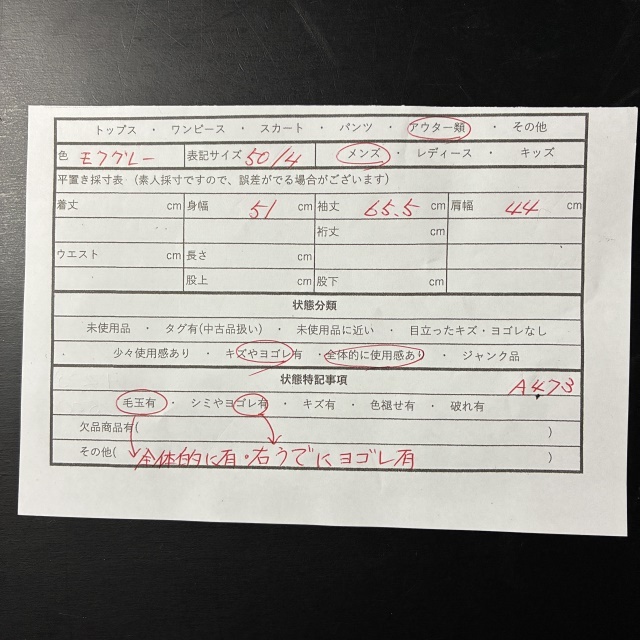 トップス ・ ワンピース ・ スカート ・ パンツ ・ アウター類 ・ その他
色 モクグレー 表記サイズ 50/4 メンズ ・ レディース ・ キッズ
平置き採寸表 (素人採寸ですので、誤差がでる場合がございます)
着丈 cm 身幅 51 cm 袖丈 65.5 cm 肩幅 44 cm
裄丈 cm
ウエスト cm 長さ cm
股上 cm 股下 cm
状態分類
未使用品 ・ タグ有(中古品扱い) ・ 未使用品に近い ・ 目立ったキズ・ヨゴレなし
少々使用感あり ・ キズやヨゴレ有 ・ 全体的に使用感あり ・ ジャンク品
状態特記事項 A473
毛玉有 ・ シミやヨゴレ有 ・ キズ有 ・ 色褪せ有 ・ 破れ有
欠品商品有( )
その他( 全体的に有・右うでにヨゴレ有 )